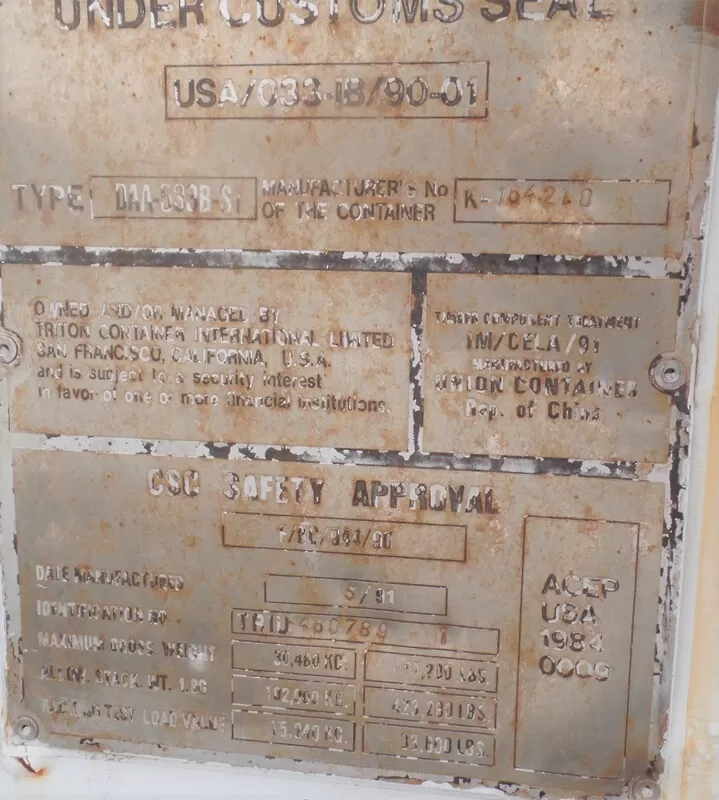 UNDER CUSTOMS SEAL
USA/033-IB/90-01
TYPE
MANUFACTURER'S No
OF THE CONTAINER
K-164210
OWNED AND/OR MANAGED BY
TRITON CONTAINER INTERNATIONAL LIMITED
SAN FRANCISCO, CALIFORNIA, U.S.A.
and is subject to a security interest
in favor of one or more financial institutions.
TIMBER COMPONENT TREATMENT
IM/CELA/91
MANUFACTURED BY
UNION CONTAINER
Rep. of China
CSC SAFETY APPROVAL
DATE MANUFACTURED
5/91
IDENTIFICATION NO.
TRIU 460789
MAXIMUM GROSS WEIGHT
30,480 KG.
,200 LBS.
ALLOW. STACK. WT. 1.8G
KG.
LBS.
TEST LOAD VALUE
15,240 KG.
33,600 LBS.
ACEP
USA
1984
0009